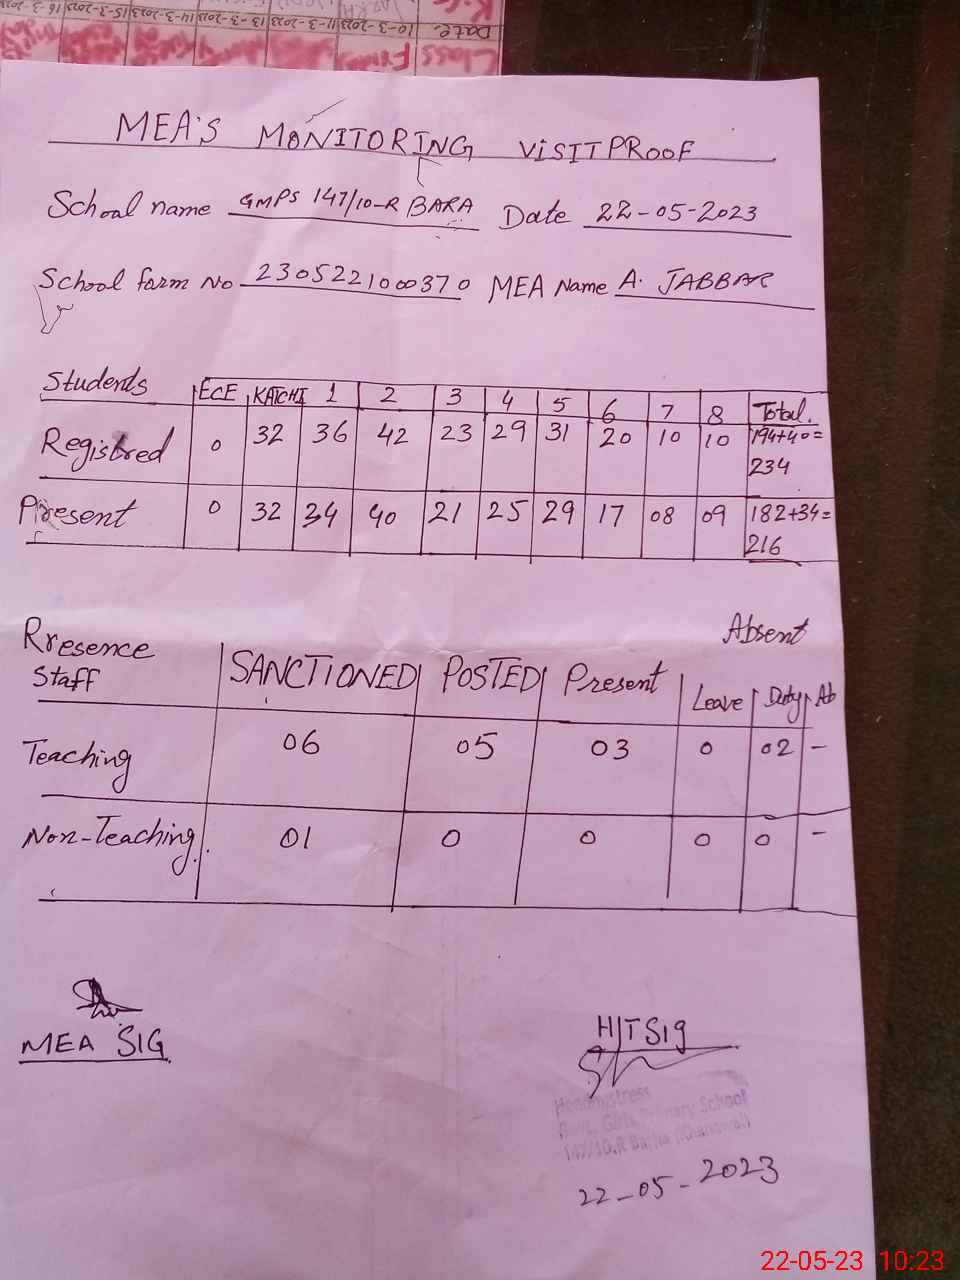 Date 10-3-2023 11-3-2023 13-3-2023 14-3-2023 15-3-2023 16-3-2023
Class
MEA'S MONITORING VISIT PROOF
School name GMPS 147/10-R BARA Date 22-05-2023
School farm No 2305221000370 MEA Name A. JABBAR
Students ECE KATCHI 1 2 3 4 5 6 7 8 Total.
Registred 0 32 36 42 23 29 31 20 10 10 194+40=
234
Present 0 32 34 40 21 25 29 17 08 09 182+34=
216
Absent
Rresence
Staff SANCTIONED POSTED Present Leave Duty Ab
Teaching 06 05 03 0 02 -
Non-Teaching 01 0 0 0 0 -
MEA SIG
H/T Sig
Headmistress
Govt. Girls Primary School
147/10.R (Khanewal)
22-05-2023
22-05-23 10:23